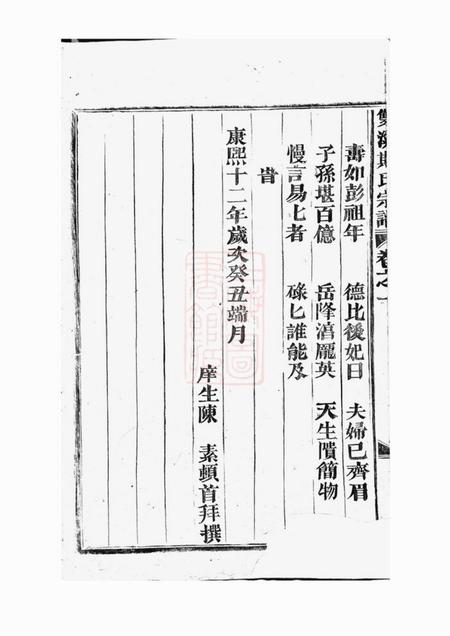 雙溪斯氏宗譜 卷之一
壽如彭祖年 德比後妃日 夫婦已齊眉
子孫堪百億 岳降濇龎英 天生隤簡物
慢言易匕者 碌匕誰能及
旹
康熙十二年歲次癸丑端月
庠生陳 素頓首拜撰